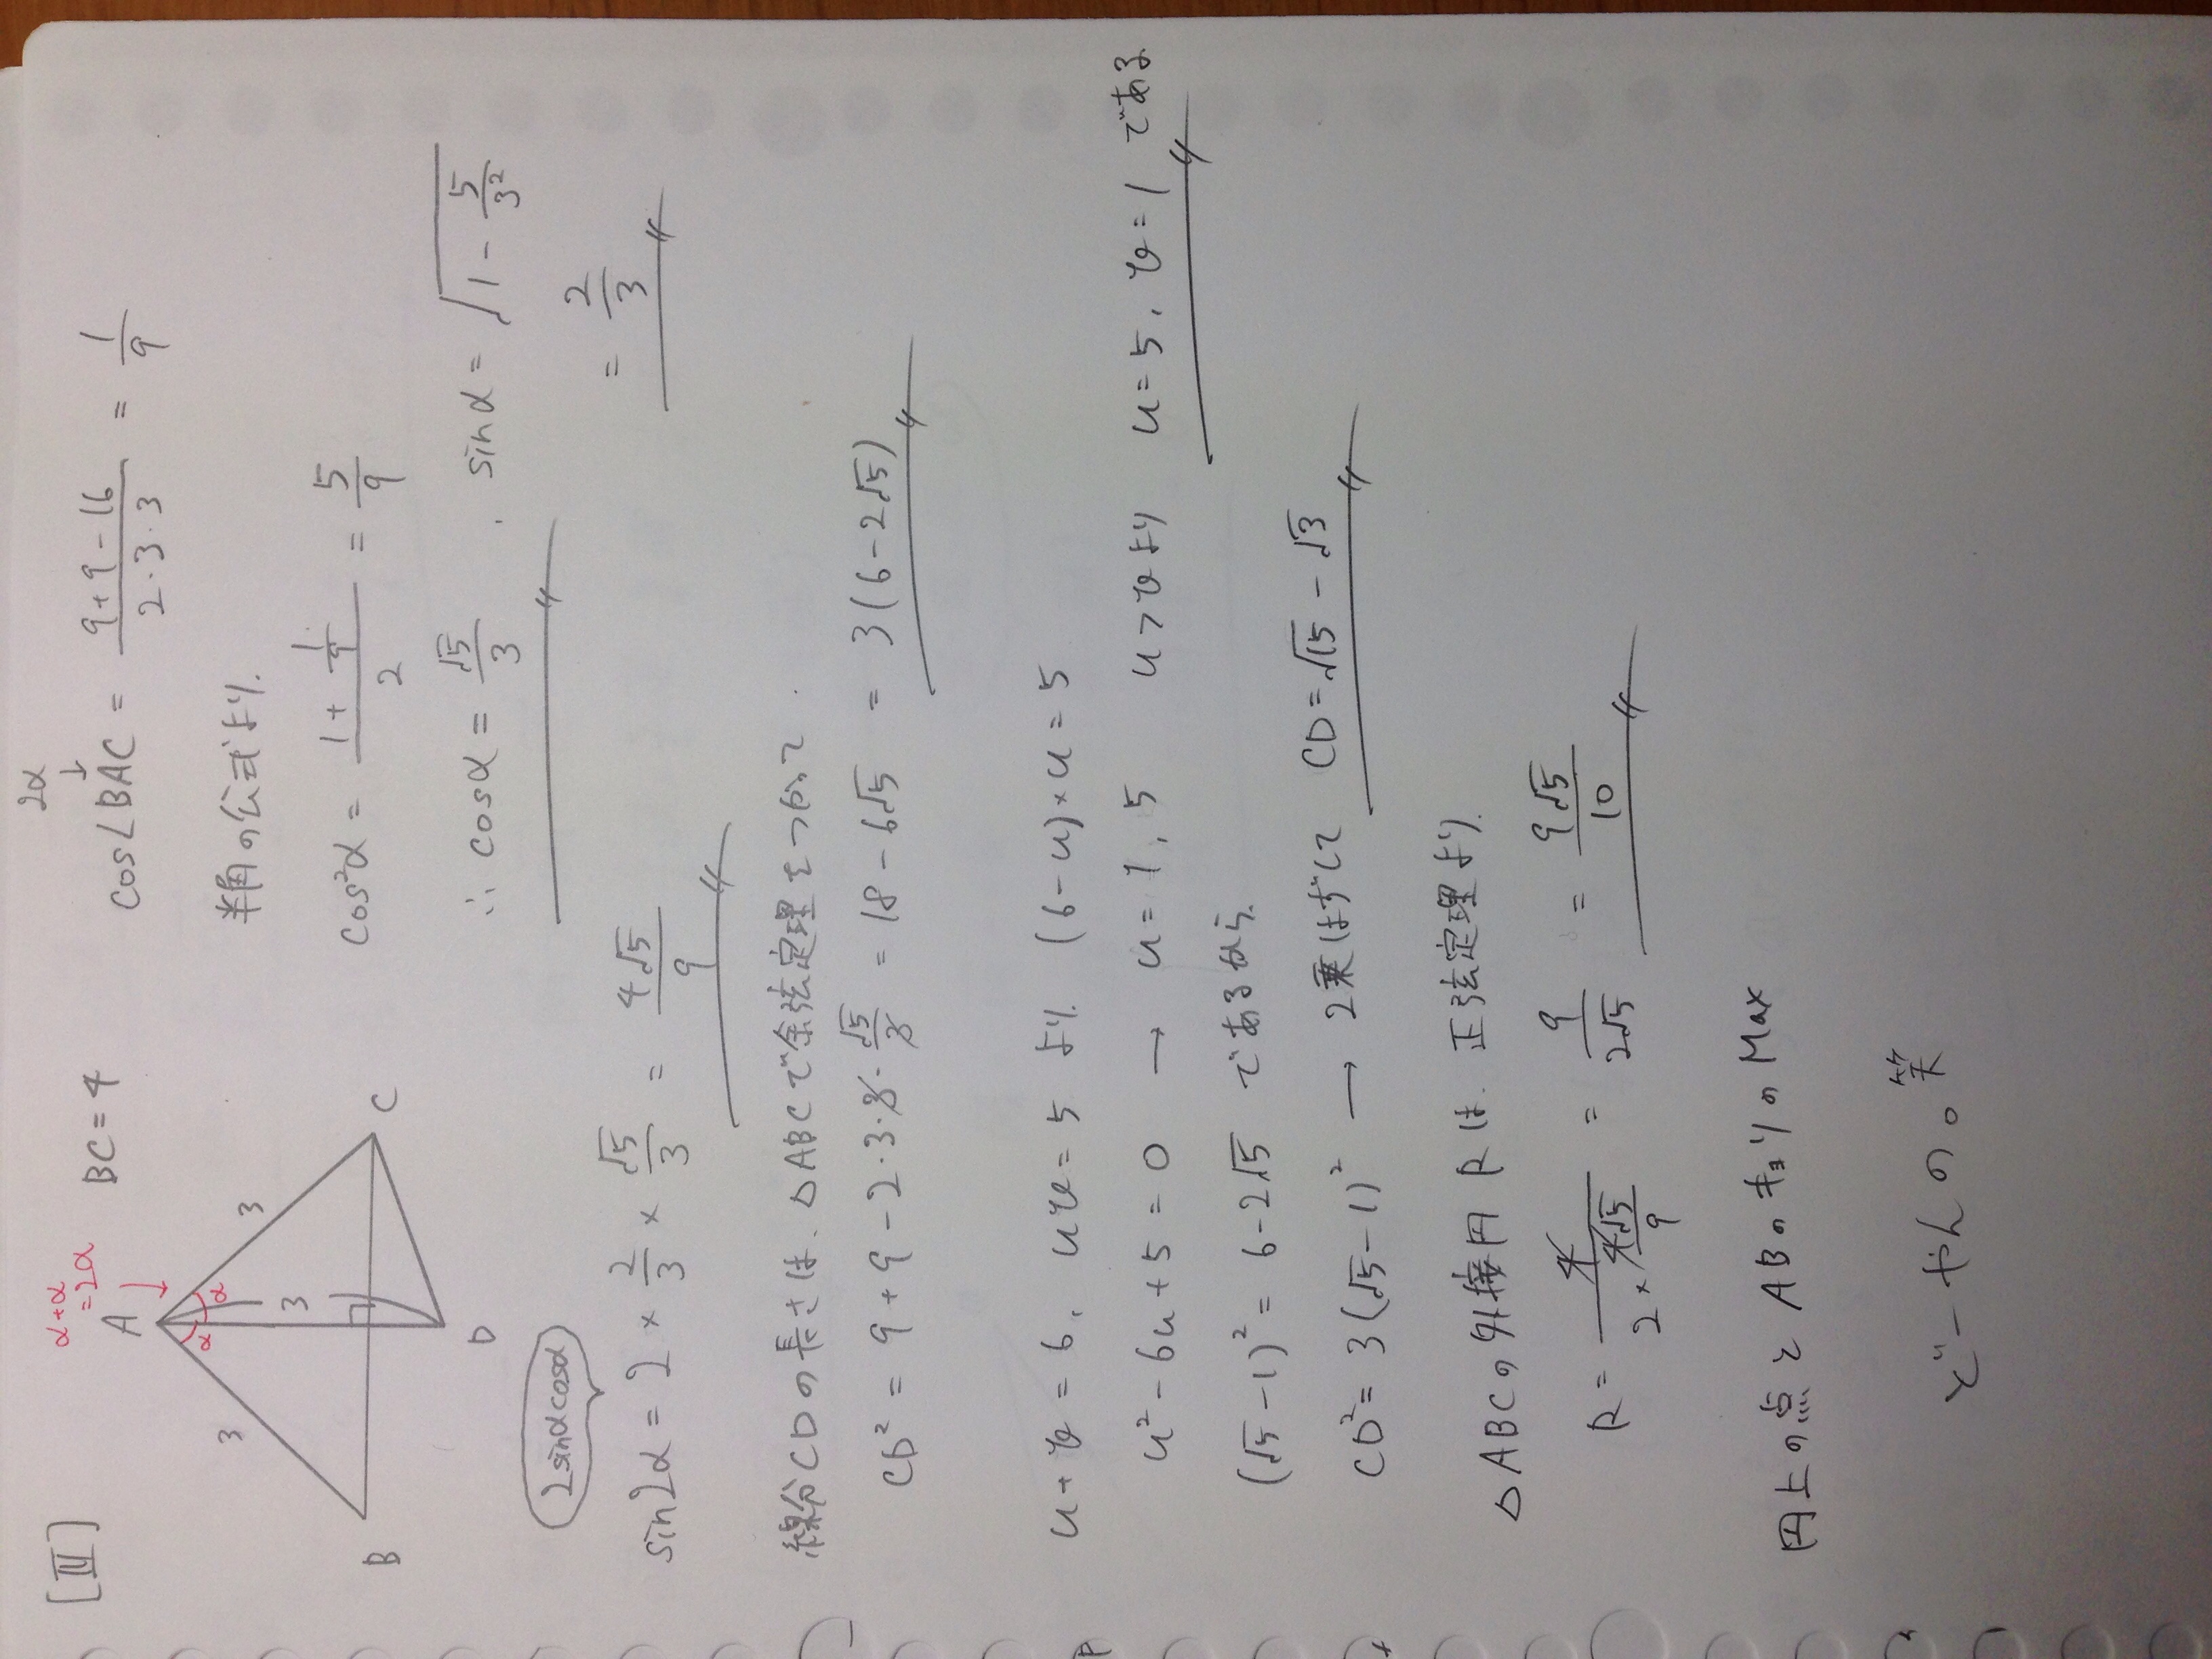 [III]
α+α
=2α
A
BC=4
3
3
3
α
α
B
C
D
2α
↓
cos∠BAC = \frac{9+9-16}{2·3·3} = \frac{1}{9}
半角の公式より.
cos²α = \frac{1+\frac{1}{9}}{2} = \frac{5}{9}
∴ cosα = \frac{√5}{3} , sinα = \sqrt{1-\frac{5}{3²}}
= \frac{2}{3}
2sinαcosα
sin2α = 2 × \frac{2}{3} × \frac{√5}{3} = \frac{4√5}{9}
線分CDの長さは、△ABCで余弦定理をつかって.
CD² = 9+9-2·3·3·\frac{√5}{3} = 18-6√5 = 3(6-2√5)
u+v = 6, uv = 5 より. (6-u)×u = 5
u²-6u+5 = 0 → u = 1, 5 u>vより u=5, v=1 である
(√5-1)² = 6-2√5 であるから.
CD² = 3(√5-1)² → 2乗はずして CD = √15-√3
△ABCの外接円Rは. 正弦定理より.
R = \frac{4}{2×\frac{4√5}{9}} = \frac{9}{2√5} = \frac{9√5}{10}
円上の点とABのキョリのMax
どーやんの。笑